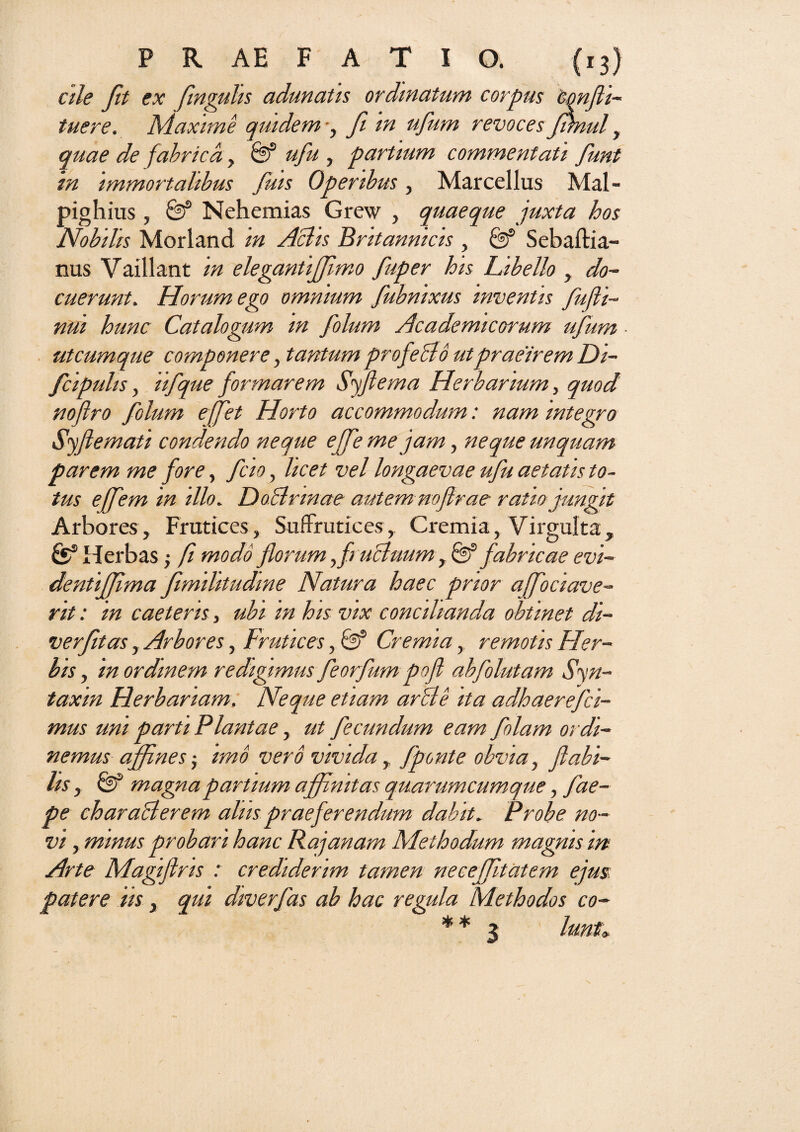 PRAEFATIO. (13)
cile ſit ex ſingulis adunatis ordinatum corpus conſti-
tuere. Maximè quidem, ſi in uſum revoces ſimul,
quae de fabricâ, & uſu, partium commentati ſunt
in immortalibus ſuis Operibus, Marcellus Mal-
pighius, & Nehemias Grew, quaeque juxta hos
Nobilis Morland in Actis Britannicis, & Sebaſtia-
nus Vaillant in elegantiſſimo ſuper his Libello, do-
cuerunt. Horum ego omnium ſubnixus inventis ſuſti-
nui hunc Catalogum in ſolum Academicorum uſum
utcumque componere, tantum profectò ut praeïrem Di-
ſcipulis, iiſque formarem Syſtema Herbarium, quod
noſtro ſolum eſſet Horto accommodum: nam integro
Syſtemati condendo neque eſſe me jam, neque unquam
parem me fore, ſcio, licet vel longaevae uſu aetatis to-
tus eſſem in illo. Doctrinae autem noſtrae ratio jungit
Arbores, Frutices, Suffrutices, Cremia, Virgulta,
& Herbas; ſi modò florum, fructuum, & fabricae evi-
dentiſſima ſimilitudine Natura haec prior aſſociave-
rit: in caeteris, ubi in his vix concilianda obtinet di-
verſitas, Arbores, Frutices, & Cremia, remotis Her-
bis, in ordinem redigimus ſeorſum poſt abſolutam Syn-
taxin Herbariam. Neque etiam arctè ita adhaereſci-
mus uni parti Plantae, ut ſecundum eam ſolam ordi-
nemus affines; imò verò vivida, ſponte obvia, ſtabi-
lis, & magna partium affinitas quarumcumque, ſae-
pe characterem aliis praeferendum dabit. Probe no-
vi, minus probari hanc Rajanam Methodum magnis in
Arte Magiſtris: crediderim tamen neceſſitatem ejus
patere iis, qui diverſas ab hac regula Methodos co-
** 3 lunt.